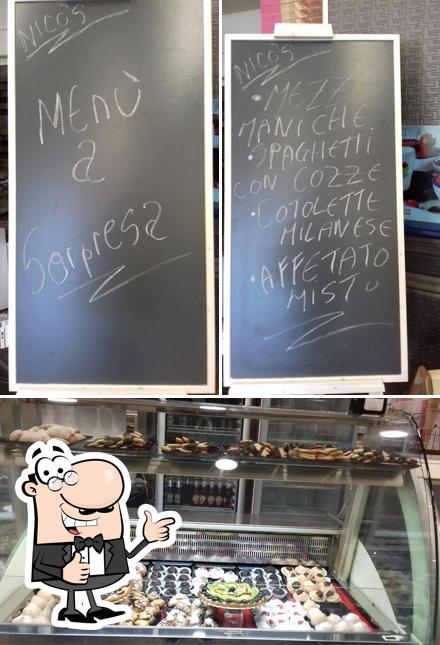 NICO'S
MENÙ
a
Sorpresa
NICO'S
• MEZZ
MANICHE
• SPAGHETTI
CON COZZE
• COTOLETTE
MILANESE
• AFFETATO
MISTO